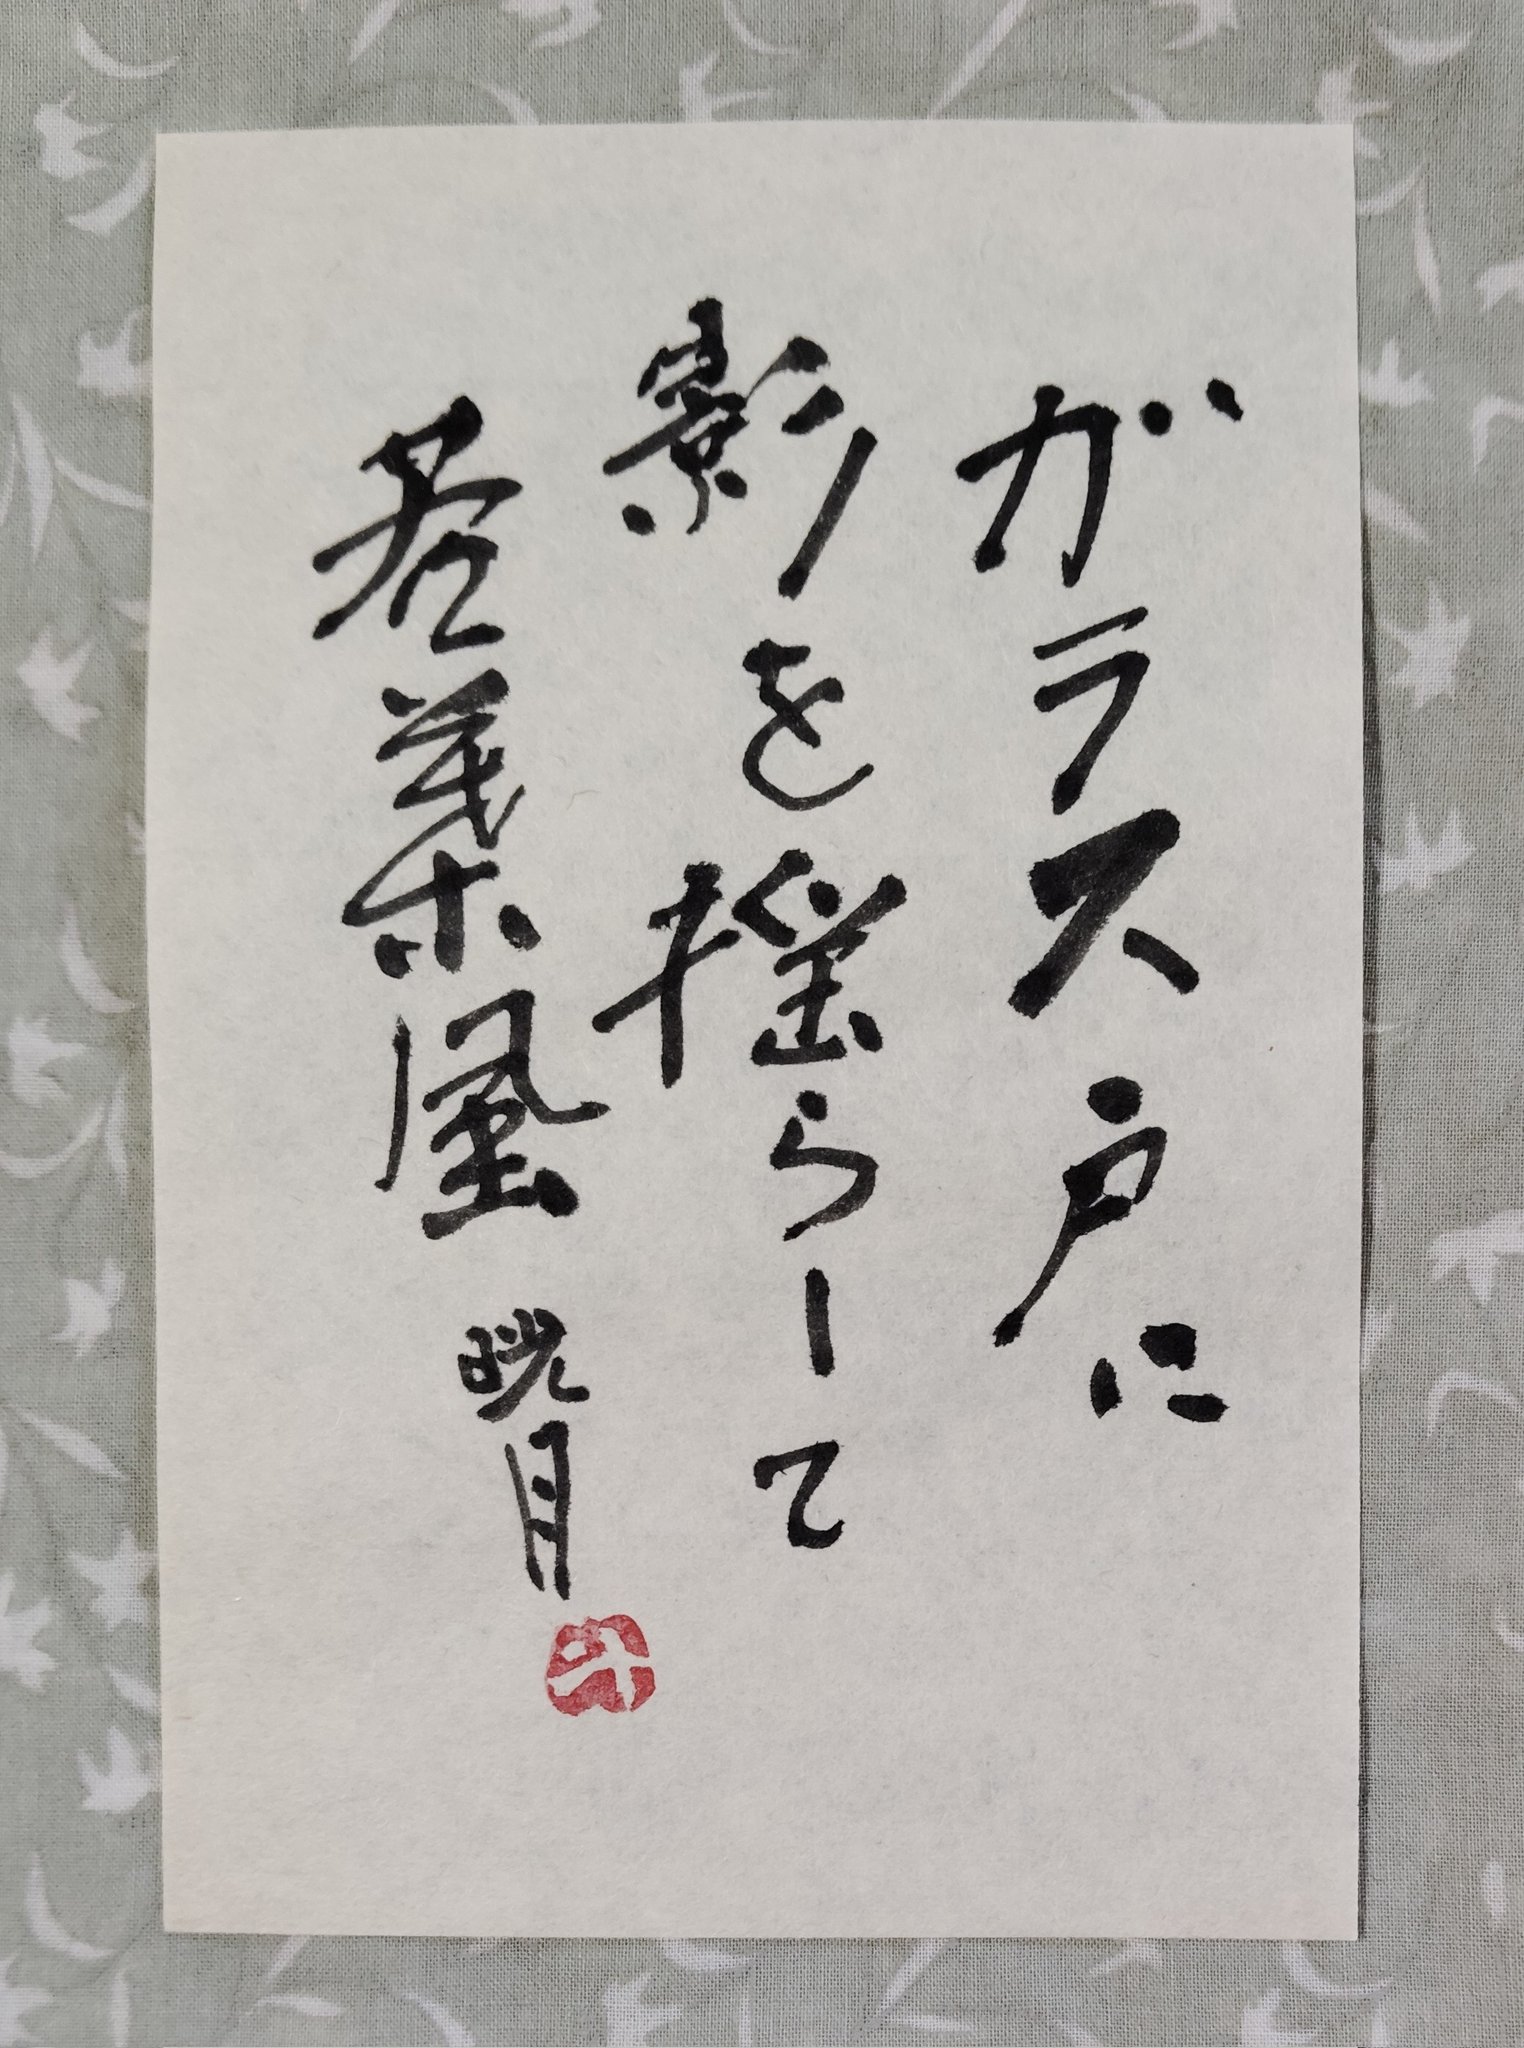 ガラス戸に
影を揺らして
若葉風 晄月